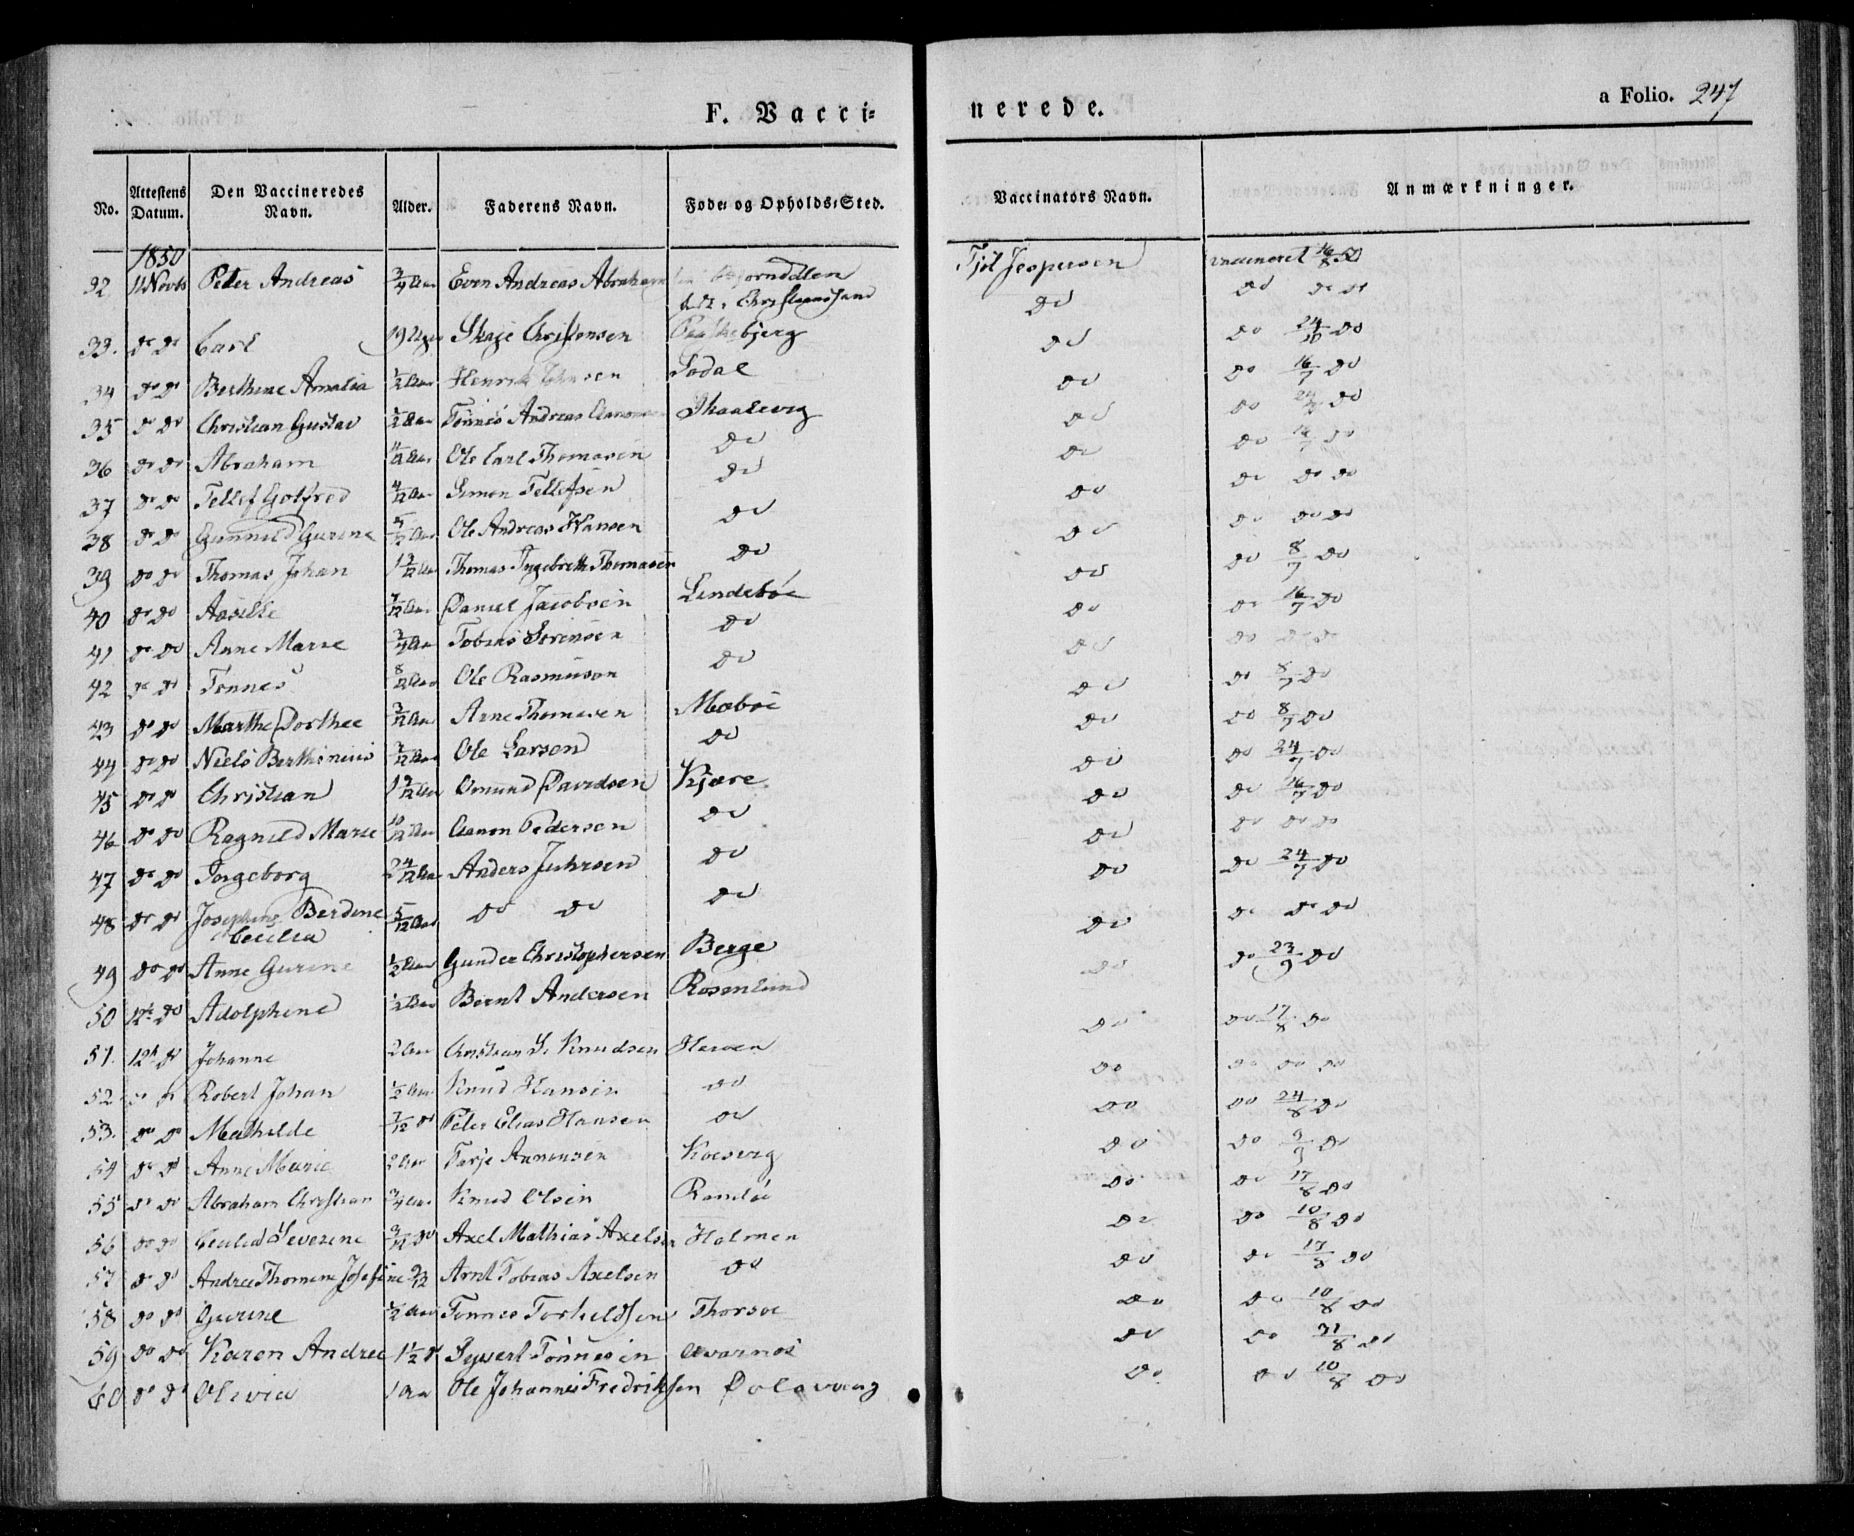 F. Vacci= nerede. a Folio. 247
No. Attestens Datum. Den Vaccineredes Navn. Alder. Faderens Navn. Føde- og Opholds-Sted. Vaccinators Navn. Anmærkninger.
1850
32 11 Novb Peter Andreas 3/4 Aar Even Andreas Abraham Bjørndalen Tjøl Jespersen vaccineret 16/8 50
Christianssand do do do do
33. do do Carl 19 Uger Skaje Christensen bjerg do do 24/10 do
34 do do Berthine Amalia 1/2 Aar Henrik Sodal do do 16/7 do
35 do do Christian Gustav 1/2 Aar Tönnes Andreas Skaalevig do do 24/7 do
36 do do Abraham Aar Ole Carl Thomasen do do do 16/7 do
37 do do Tellef Gotfred 4/12 Aar Simon Tellefsen do do do do do
38 do do Gunnild Gurine Aar Ole Andreas Hansen do do do do do
39 do do Thomas Johan Aar Thomas Ingebreth Thomasen do do do 8/7 do
40 do do Aasille 7/12 Aar Daniel Jacobsen Lindeböe do do 16/7 do
41 do do Anne Marie 3/4 Aar Tobias Sørensen do do do do do
42 do do Tønnes 8/12 Aar Ole Rasmuson do do do 8/7 do
43 do do Marthe Dorthee 3/12 Aar Arne Thomesen Mæböe do do 8/7 do
44 do do Niels Berthinius Aar Ole Larsen do do do 24/7 do
45 do do Christian Aar Omund Davidsen Kjære do do 16/7 do
46 do do Ragnild Marie 10/12 Aar Aanon Pedersen do do do do do
47 do do Ingeborg 2 4/12 Aar Anders Juhrsen do do do 24/7 do
48 do do Josephine Berdine 5/12 Aar do do do do do do do
Cecilia
49 do do Anne Gurine 1/2 Aar Gunder Christophersen Berge do do 23/9 do
50 12te do Adolphine 1/2 Aar Bernt Andersen Rosenlund do do 17/8 do
51. 12te do Johanne 2 Aar Christian S. Knudsen do do do do
52 do do Robert Johan 1/2 Aar Knud Hansen do do do 24/8 do
53. do do Mathilde 7/12 do Peter Elias Hansen do do do do
54 do do Anne Marie 2 Aar Tarje Kosevig do do 17/8 do
55 do do Abraham Christian 3/4 Aar Knud Olsen Randöe do do 10/8 do
56 do do Cecilia Severine do Axel Mathias Axelsen Holmen do do 17/8 do
57 do do Andrea Thomine Josefine 9/12 Arnt Tobias Axelsen do do do 10/8 do
58 do do Gurine 1/2 Aar Tönnes Torkildsen Thorsöe do do 31/8 do
59 do do Karen Andrea 1 1/2 do Syvert Tönnesen Avarnes do do 10/8 do
60 do do Olivia 1 Aar Ole Johannes Fredriksen